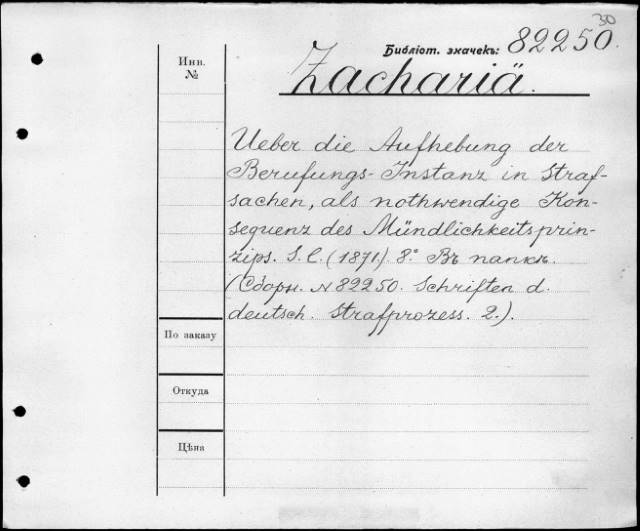 30
Библіот. значекъ: 82250.
Инв.
№
Zachariä.
Ueber die Aufhebung der
Berufungs-Instanz in Straf-
sachen, als nothwendige Kon-
sequenz des Mündlichkeitsprin-
zips. S. l. (1871). 8.° Въ папкѣ.
(Сборн. № 82250. Schriften d.
deutsch. Strafprozess. 2.).
По заказу
Откуда
Цѣна